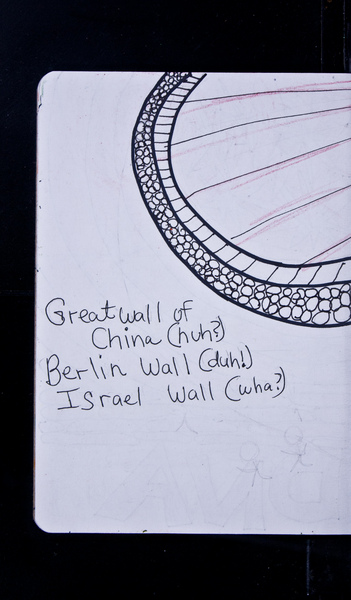 Great wall of
China (huh?)
Berlin Wall (duh!)
Israel Wall (wha?)